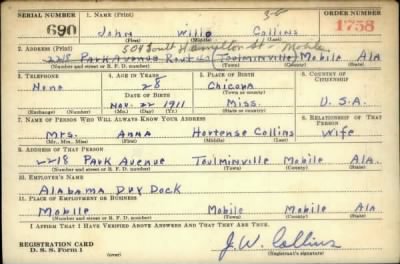 SERIAL NUMBER 1. NAME (Print) ORDER NUMBER
690 John Willo Collins 1758
504 South Hamilton St - Mobile
2. ADDRESS (Print)
2218 Park Avenue Route (Toulminville) Mobile Ala
(Number and street or R. F. D. number) (Town) (County) (State)
3. TELEPHONE 4. AGE IN YEARS 5. PLACE OF BIRTH 6. COUNTRY OF CITIZENSHIP
None 28 Chicora
DATE OF BIRTH (Town or county)
Nov. 22 1911 Miss. U.S.A.
(Exchange) (Number) (Mo.) (Day) (Yr.) (State or country)
7. NAME OF PERSON WHO WILL ALWAYS KNOW YOUR ADDRESS 8. RELATIONSHIP OF THAT PERSON
Mrs. Anna Hortense Collins Wife
(Mr., Mrs., Miss) (First) (Middle) (Last)
9. ADDRESS OF THAT PERSON
2218 Park Avenue Toulminville Mobile Ala.
(Number and street or R. F. D. number) (Town) (County) (State)
10. EMPLOYER'S NAME
Alabama Dry Dock
11. PLACE OF EMPLOYMENT OR BUSINESS
Mobile Mobile Mobile Ala
(Number and street or R. F. D. number) (Town) (County) (State)
I AFFIRM THAT I HAVE VERIFIED ABOVE ANSWERS AND THAT THEY ARE TRUE.
REGISTRATION CARD
D. S. S. Form 1 (over) J. W. Collins
(Registrant's signature)